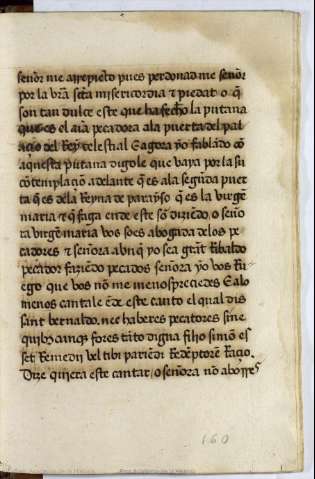 señor me arrepiẽto pues perdonad me señor
por la vr̃a scta misericordia τ piedat o q̃
son tan dulce este que ha fecho la putana
que es el aĩa pecadora ala puerta del pal
acio del Rey celestial E agora yo fablãdo cõ
aquesta putana digole que vaya por la su
cõtemplaciõ adelante q̃ es ala segũda puer
ta q̃ es dela Reyna de parayso q̃ es la virgẽ
maria τ q̃ faga ende este sõ diziẽdo o seño
ra virgẽ maria vos soes abogada delos pe
cadores τ señora abnq̃ yo sea grãt Ribaldo
pecador faziẽdo pecados señora yo vos Ru
ego que vos nõ me menospreciedes E alo
menos cantale ẽde este canto el qual dis
sant bernaldo. nec haberes pecatores sine
quibꝰ cunqȝ fores tãto digna filio simõ es
set Remedii vel tibi pariẽdi Redẽptorem Racio.
Dize quiera este cantar, o señora nõ aborres
160